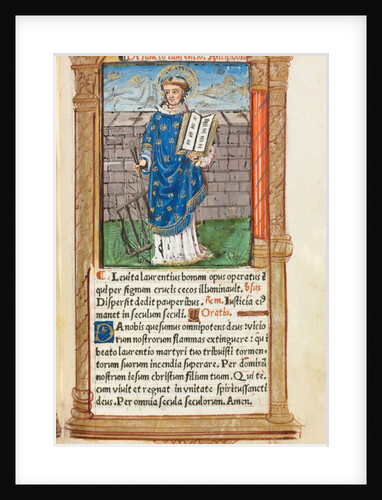 De sancto laurentio. Antiphon
C Leuita laurentius bonum opus operatus ē
qui per signum crucis cecos illuminauit. v̄sus
Dispersit dedit pauperibus. ℟em. Iusticia ei⁹
manet in seculum seculi. C Oratio.
DA nobis quesumus omnipotens deus: vicio
rum nostrorum flammas extinguere: qui
beato laurentio martyri tuo tribuisti tormen-
torum suorum incendia superare. Per dominū
nostrum iesum christum filium tuum. Qui te-
cum viuit et regnat in vnitate spiritussancti
deus. Per omnia secula seculorum. Amen.